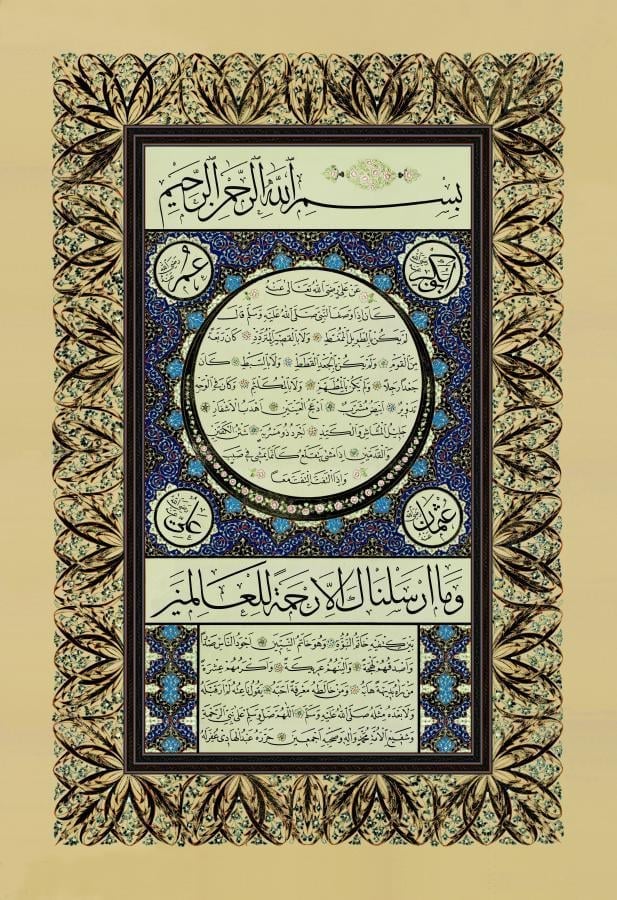 بسم الله الرحمن الرحيم
ابوبكر رضي الله عنه
عمر رضي الله عنه
عن علي رضي الله تعالى عنه
كان اذا وصف النبي صلى الله عليه وسلم قال
لم يكن بالطويل الممغط ولا بالقصير المتردد كان ربعة
من القوم ولم يكن بالجعد القطط ولا بالسبط كان
جعدا رجلا ولم يكن بالمطهم ولا بالمكلثم وكان في الوجه
تدوير ابيض مشرب ادعج العينين اهدب الاشفار
جليل المشاش والكتد اجرد ذو مسربة شثن الكفين
والقدمين اذا مشى يتقلع كانما يمشي في صبب
واذا التفت التفت معا
عثمان رضي الله عنه
علي رضي الله عنه
وما ارسلناك الا رحمة للعالمين
بين كتفيه خاتم النبوة وهو خاتم النبيين اجود الناس صدرا
واصدقهم لهجة والينهم عريكة واكرمهم عشرة
من رآه بديهة هابه ومن خالطه معرفة احبه يقول ناعته لم ار قبله
ولا بعده مثله صلى الله عليه وسلم اللهم صل وسلم على نبي الرحمة
وشفيع الامة محمد وآله وصحبه اجمعين حرره عبدالهادي غفر له